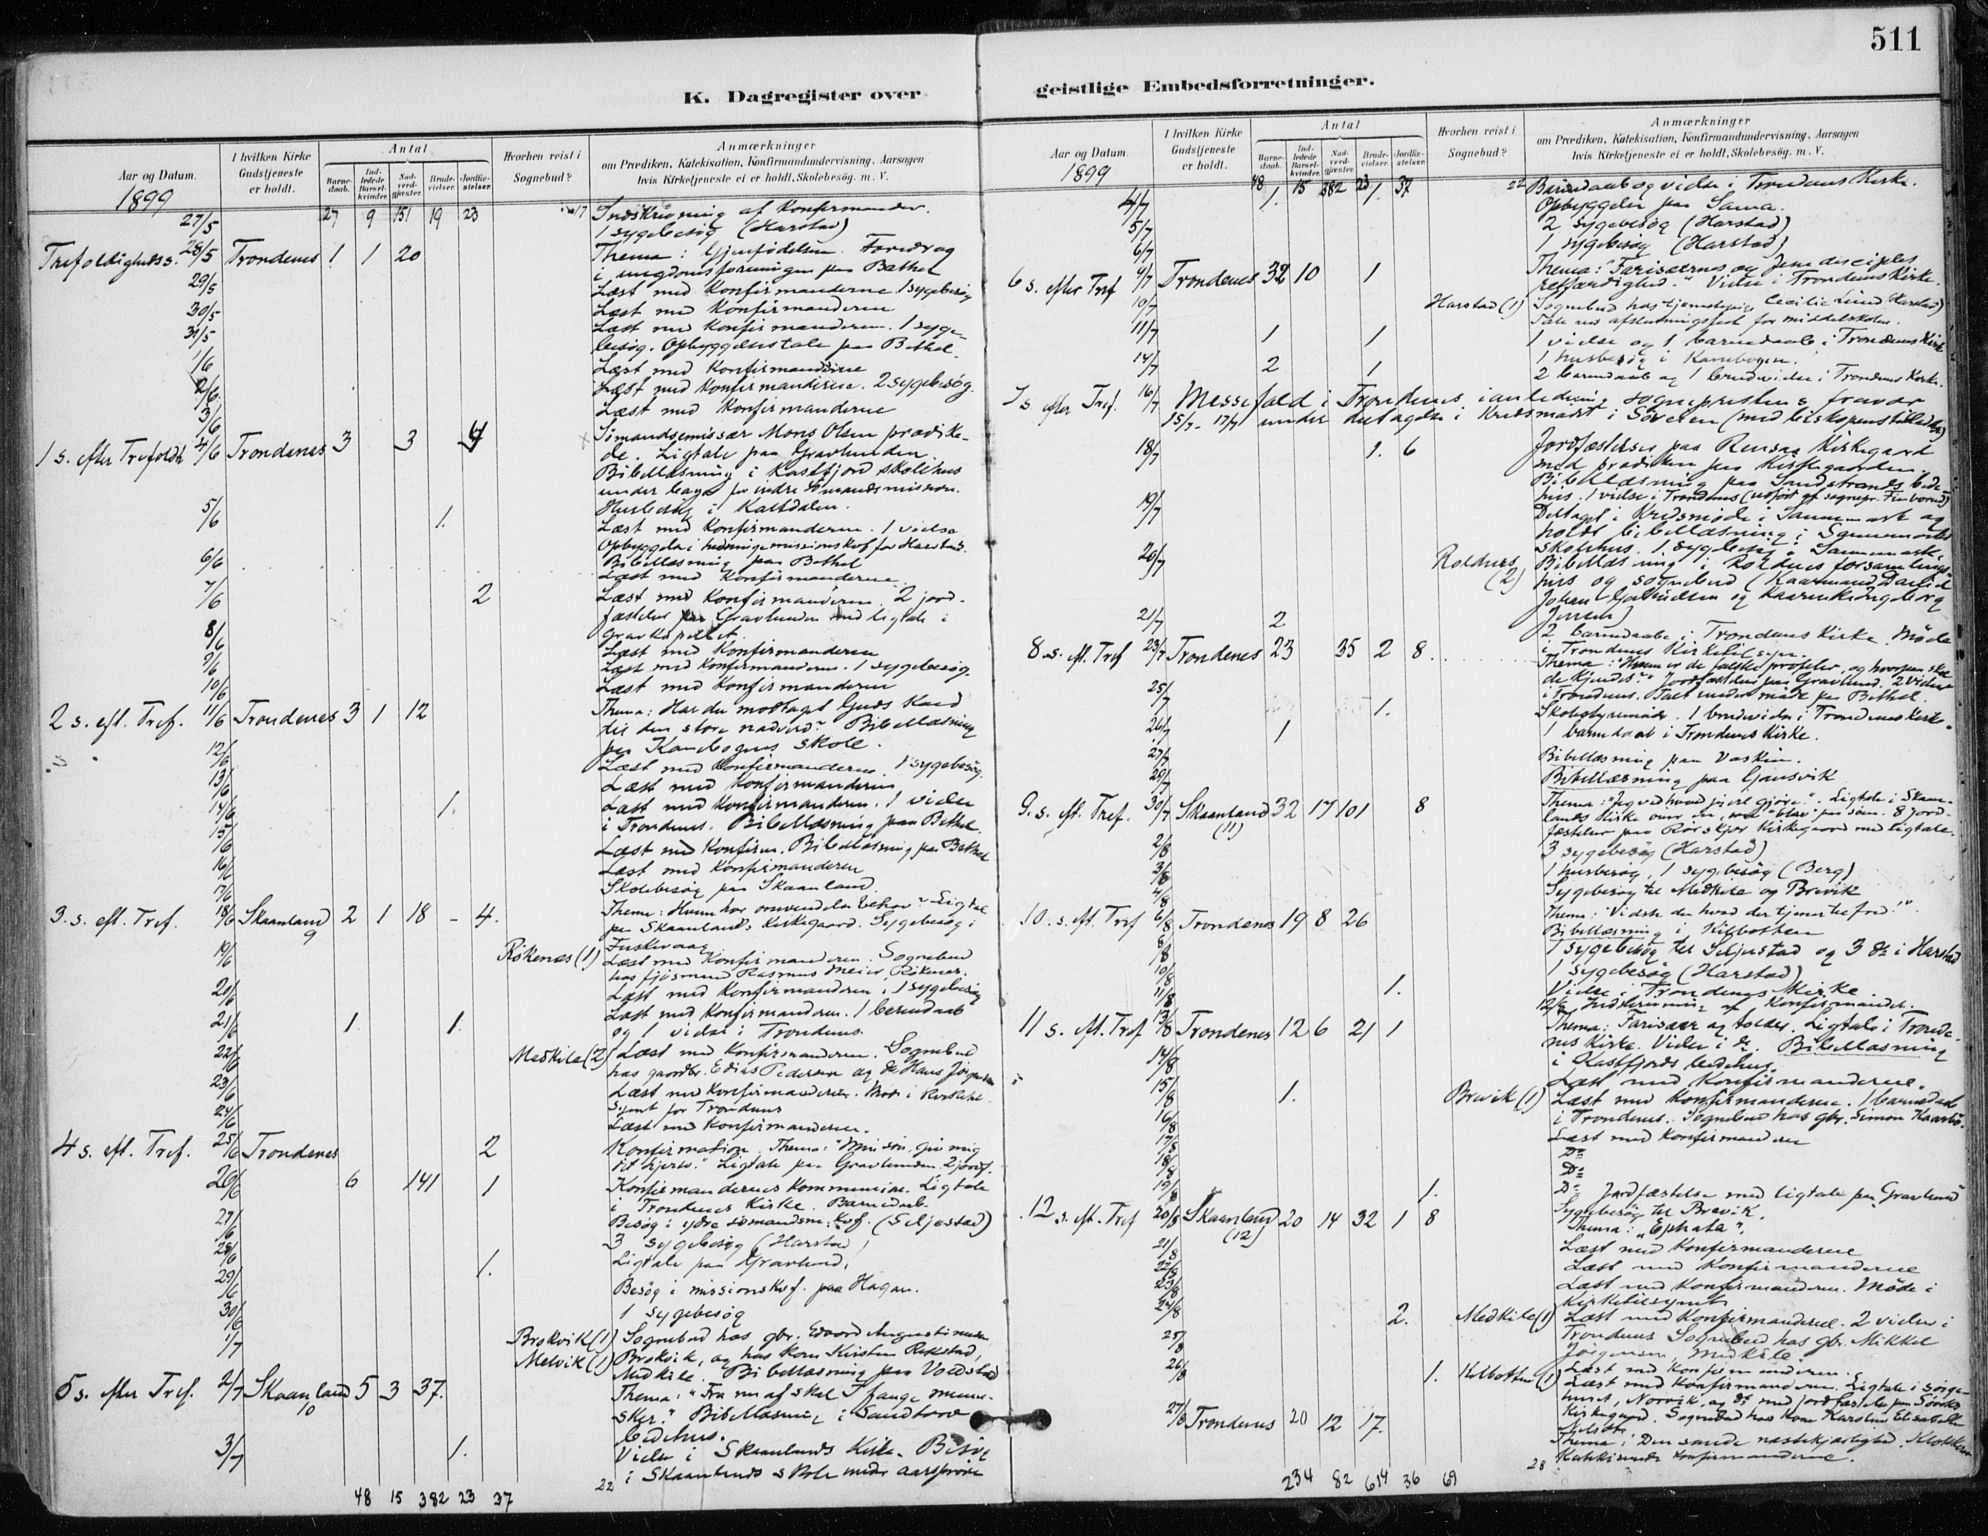 511
K. Dagregister over geistlige Embedsforretninger.
Aar og Datum. 1899
I hvilken Kirke Gudstjeneste er holdt.
Antal
Barne-daab. Ind-ledede Barsel-kvinder. Nad-verd-gjæster. Brude-vielser. Jordfæ-stelser.
Hvorhen reist i Sognebud?
Anmærkninger
om Prædiken, Katekisation, Konfirmandundervisning, Aarsagen
hvis Kirketjeneste ei er holdt, Skolebesøg. m. V.
27 9 151 19 23 17
27/5 Indskrivning af Konfirmander.
1 sygebesøg (Harstad)
Trefoldigheds s. 28/5 Trondenes 1 1 20 Thema: Gjenfødelsen. Foredrag
i ungdomsforeningen paa Bethel
29/5 Læst med Konfirmanderne 1 sygebesøg
30/5 Læst med Konfirmanderne
31/5 Læst med Konfirmanderne. 1 syge-
besøg. Opbyggelsestale paa Bethel.
1/6 Læst med Konfirmanderne
2/6 Læst med Konfirmanderne. 2 sygebesøg.
3/6 Læst med Konfirmanderne
1 s. efter Trefoldh 4/6 Trondenes 3 3 4 Sømandsemissær Mons Olsen prædike-
de. Ligtale paa Gravlunden.
Bibellæsning i Kastfjord skolehus
under bazar for indre Sømandsmission.
5/6 1. Husbesøg i Kaltdalen.
Læst med Konfirmanderne. 1 vielse
Opbyggelse i hedningemissionskvf. for Harstad.
6/6 Bibellæsning paa Bethel
Læst med Konfirmanderne.
7/6 2 Læst med Konfirmanderne. 2 jord-
fæstelser paa Gravlunden med ligtale i
Gravkapellet.
8/6 Læst med Konfirmanderne
9/6 Læst med Konfirmanderne. 1 sygebesøg.
10/6 Læst med Konfirmanderne
2 s. eft. Tref. 11/6 Trondenes 3 1 12 Thema: Har du modtaget Guds Kald
til den store nadverd? Bibellæsning
paa Kanebogens skole.
12/6 Læst med Konfirmanderne. 1 sygebesøg.
13/6 Læst med Konfirmanderne
14/6 1. Læst med Konfirmanderne. 1 vielse
i Trondenes. Bibellæsning paa Bethel.
15/6 Læst med Konfirm. Bibellæsning paa Bethel
16/6 Læst med Konfirmanderne
17/6 Skolebesøg paa Skaanland.
3. s. eft. Tref. 18/6 Skaanland 9 2 1 18 – 4. Thema: Hvem har omvendelse behov? Ligtale
paa Skaanlands Kirkegaard. Sygebesøg i
Fuskevaag
19/6 Røkenæs (1) Læst med Konfirmanderne. Sognebud
hos fjøsmand Rasmus Meier Røkenæs.
20/6 Læst med Konfirmanderne. 1 sygebesøg
21/6 1 1. Læst med Konfirmanderne. 1 barnedaab
og 1 vielse i Trondenes.
22/6 Medkile (2) Læst med Konfirmanderne. Sognebud
hos gaardbr. Edias Pedersen og do Hans Jørgensen
23/6 Læst med Konfirmanderne. Møde i Kirketil-
synet for Trondenes
24/6 Læst med Konfirmanderne.
4 s. eft. Tref. 25/6 Trondenes 2 Konfirmation. Thema: "Min søn, giv mig
dit hjerte." Ligtale paa Gravlunden. 2 jordf.
26/6 6 141 1 Konfirmandernes Kommunion. Ligtale
i Trondenes Kirke. Barnedaab.
27/6 Besøg i ydre sømandsm. kvf. (Seljestad)
28/6 3 sygebesøg (Harstad)
29/6 1. Ligtale paa Gravlund.
Besøg i missionskvf. paa Hagan.
30/6 1 sygebesøg
1/7 Brokvik (1) Sognebud hos gbr. Edvard Augustinussen
Melvik (1) Brokvik, og hos kone Kirsten Rekstad,
Medkile. Bibellæsning paa Voldstad
5 s. efter Tref. 2/7 Skaanland 10 5 3 37. Thema: "Fra nu af skal I fange menne-
sker." Bibellæsning i Sandtorv
bedehus.
3/7 1. Vielse i Skaanlands Kirke. Besøg
i Skaanlands skole under aarsprøve
48 15 382 23 37 22
Aar og Datum. 1899
I hvilken Kirke Gudstjeneste er holdt.
Antal
Barne-daab. Ind-ledede Barsel-kvinder. Nad-verd-gjæster. Brude-vielser. Jordfæ-stelser.
Hvorhen reist i Sognebud?
Anmærkninger
om Prædiken, Katekisation, Konfirmandundervisning, Aarsagen
hvis Kirketjeneste ei er holdt, Skolebesøg. m. V.
48 15 382 23 37 22
4/7 1. 1. Barnedaab og vielse i Trondenes Kirke.
Opbyggelse paa Sama.
5/7 2 sygebesøg (Harstad)
6/7 1 sygebesøg (Harstad)
6 s. efter Tref 9/7 Trondenes 32 10 1 Thema: "Farisæernes og Jesu disciples
retfærdighed." Vielse i Trondenes Kirke.
10/7 Harstad (1) Sognebud hos tjenestepige Cecilie Lund (Harstad)
Tale ved afslutningsfest for middelskolen.
11/7 1 1 1 vielse og 1 barnedaab i Trondenes Kirke
1 husbesøg i Kanebogen.
14/7 2 1 2 barnedaab og 1 brudevielse i Trondenes Kirke.
7 s. efter Tref. 16/7 Messefald i Trondenes i anledning sogneprestens fravær
15/7 - 17/7 under deltagelse i Kredsmødet i Sørvelen (med biskopens tilladelse)
18/7 1. 6 Jordfæstelser paa Rensaa Kirkegaard
med prædiken paa Kirkegaarden.
Bibellæsning paa Sandstrands bede-
hus. 1 vielse i Trondenes (udført af sognepr. Finborud)
19/7 Deltaget i Kredsmøde i Sannemark og
holdt bibellæsning i Sannemarkens
skolehus. 1 sygebesøg i Sannemark.
20/7 Roldnes (2) Bibellæsning i Roldnes forsamlings-
hus og sognebud (Kaarmand Daniel
Johan Gabrielsen og Kaarenke Ingeborg
Jensen)
21/7 2 2 barnedaabe i Trondenes Kirke. Møde
i Trondenes Kirketilsyn.
8. s. eft. Tref 23/7 Trondenes 23 35 2 8. Thema: "Hvem er de falske profeter, og hvorpaa skal
de kjendes?" Jordfæstelse paa Gravlund. 2 vielser
i Trondenes. Talt under møde paa Bethel.
25/7 1. Skolestyremøde. 1 brudevielse i Trondenes Kirke.
26/7 1 1 barnedaab i Trondenes Kirke.
27/7 Bibellæsning paa Vaskin.
29/7 Bibellæsning paa Gausvik
9. s. eft. Tref. 30/7 Skaanland (11) 32 17 101 8 Thema: "Jeg ved hvad jeg vil gjøre." Ligtale i Skaan-
lands Kirke over en, ved "blev" paa søen. 8 jord-
fæstelser paa Rørskjær Kirkegaard med ligtale.
2/8 3 sygebesøg (Harstad)
3/8 1 husbesøg, 1 sygebesøg (Berg)
4/8 Sygebesøg til Medkile og Brevik
10. s. eft. Tref 6/8 Trondenes 19 8 26 Thema: "Vidste du hvad der tjener til fred!"
Bibellæsning i Kilbotten
8/8 1 sygebesøg til Seljestad og 3 do i Harstad
10/8 1 sygebesøg (Harstad)
11/8 1. Vielse i Trondenes Kirke.
12/8 Indskrivning af Konfirmander.
11 s. eft. Tref 13/8 Trondenes 12 6 21 1 Thema: Farisæer og tolder. Ligtale i Tronde-
nes Kirke. Vielse i do. Bibellæsning
i Kastfjords bedehus.
14/8 Læst med Konfirmanderne.
15/8 1. Brevik (1) Læst med Konfirmanderne. 1 barnedaab
i Trondenes. Sognebud hos gbr. Simon Kaarbø.
16/8 Læst med Konfirmanderne
17/8 Do
18/8 Do
19/8 1. Do Jordfæstelse med ligtale paa Gravlund
Sygebesøg til Brevik.
12 s. eft. Tref 20/8 Skaanland (12) 20 14 32 1 8 Thema: "Ephata".
21/8 Læst med Konfirmanderne
22/8 Læst med Konfirmanderne
23/8 Læst med Konfirmanderne. Møde i
Kirketilsynet.
24/8 2. Medkile (1) Læst med Konfirmanderne. 2 vielser i
Trondenes Sognebud hos gbr. Mikkel
Jørgensen, Medkile.
25/8 Læst med Konfirmanderne.
26/8 1. Kilbotten (1) Læst med Konfirmanderne. Ligtale i sørge-
huset, Norvik, og do med jordfæstelse paa Sørviks
Kirkegaard. Sognebud hos kone Karoline Elisabeth
Nilsen.
27/8 Trondenes 20 12 17. Thema: Den sande næstekjærlighed. Klokkeren
Katekiserede Konfirmanderne.
234 82 614 36 69 28